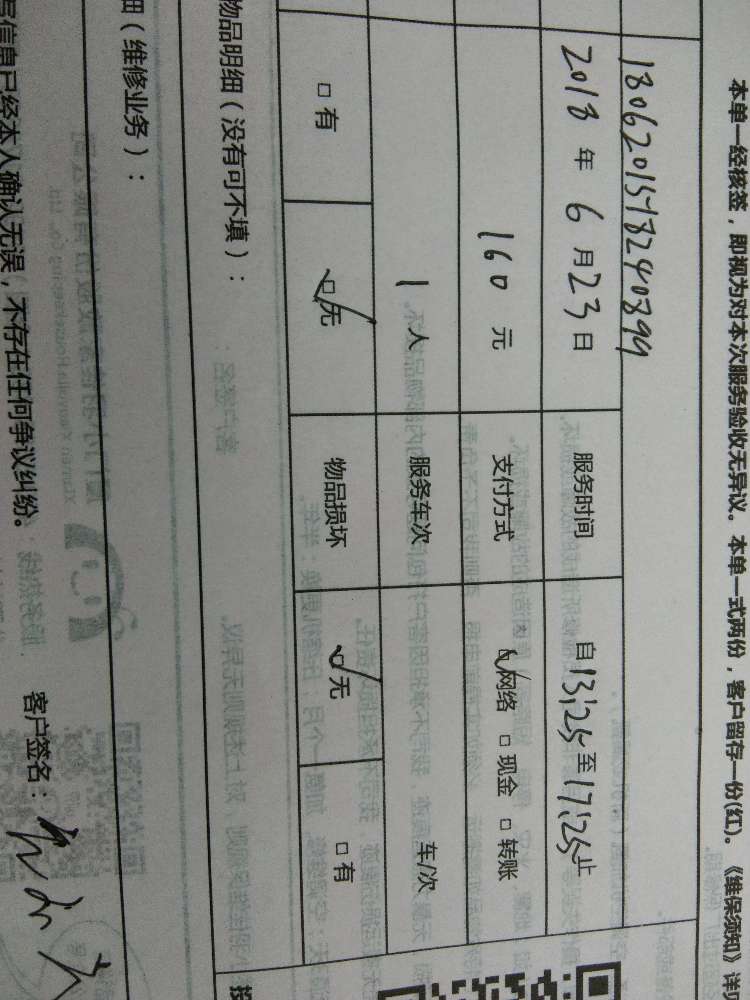 本单一经核签，即视为对本次服务验收无异议。本单一式两份，客户留存一份(红)。《维保须知》详见
1806201518240899
2018 年 6 月 23 日 服务时间 自 13:25 至 17:25 止
160 元 支付方式 ☑网络 □现金 □转账
1 人 服务车次 车/次
□有 ☑无 物品损坏 ☑无 □有
物品明细（没有可不填）：
细（维修业务）：
写信息已经本人确认无误，不存在任何争议纠纷。 客户签名：